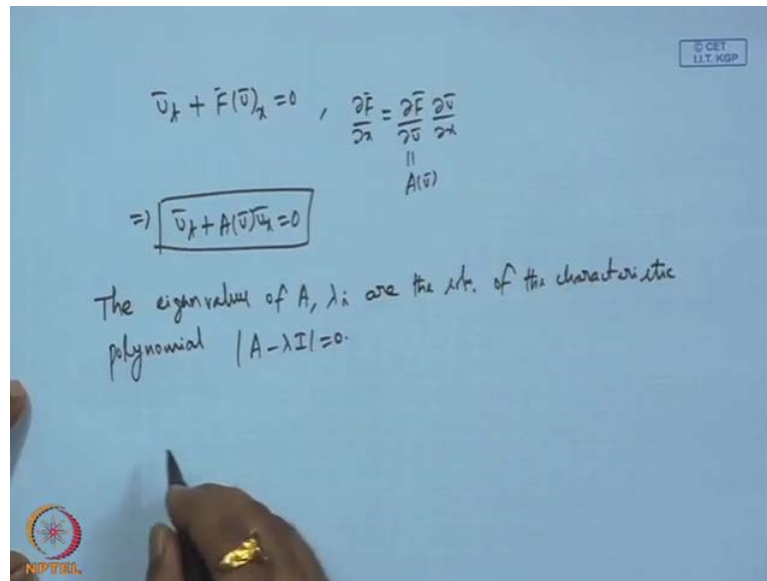 © CET
I.I.T. KGP
Ū_t + F̄(Ū)_x = 0 , ∂F̄/∂x = ∂F̄/∂Ū ∂Ū/∂x
||
A(Ū)
⇒) Ū_t + A(Ū)Ū_x = 0
The eigenvalues of A, λ_i are the sol. of the characteristic
polynomial |A - λI| = 0.
NPTEL